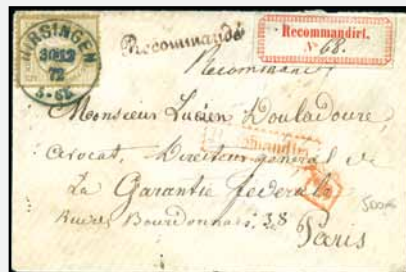 HIRSINGEN
30 12
72
Recommandé
Recommandirt.
Nº 68.
Recommandé
Monsieur Lucien Douladoure
Avocat, Directeur général de
La Garantie fédérale
Bourdonnais, 38
Paris